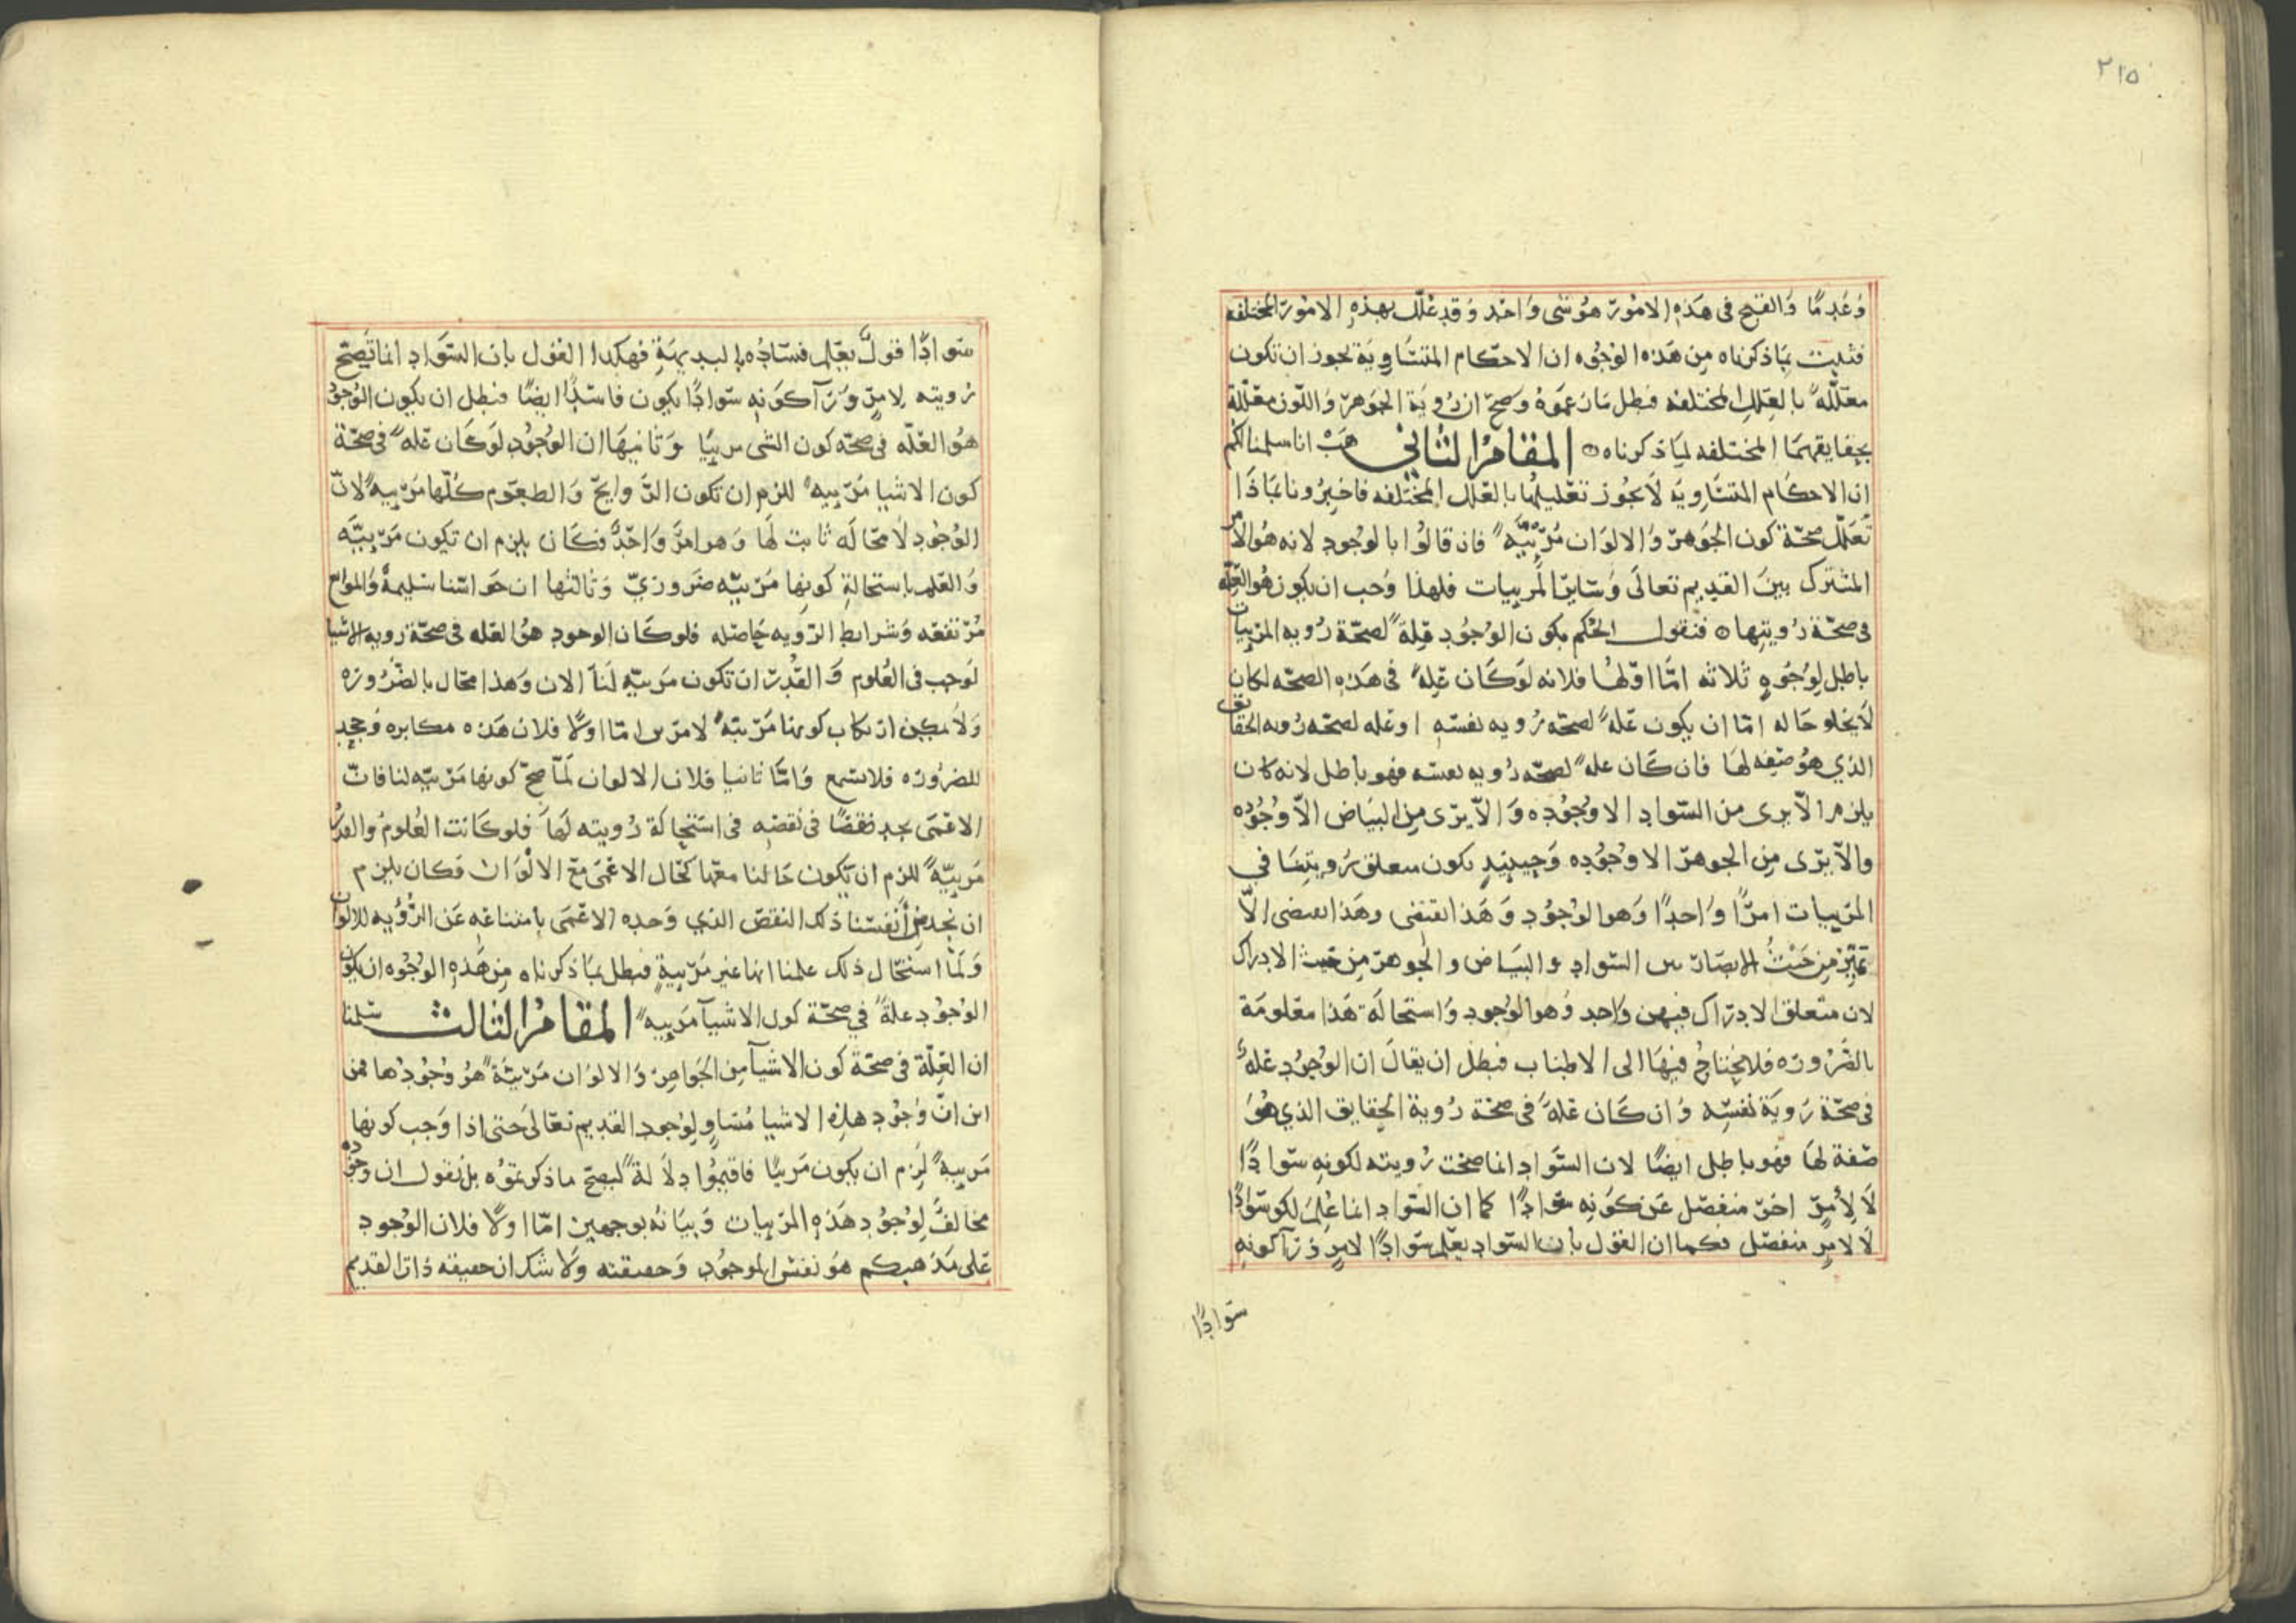 ٢١٥
وعدما والقبح فى هذه الامور هو شى واحد وقد علل بهذه الامور المختلفه
فثبت بما ذكرناه من هذه الوجوه ان الاحكام المتساوية يجوز ان تكون
معللة بالعلل المختلفه فبطل ما زعموه وصح ان روية الجوهر واللون معللة
بحقايقهما المختلفه لما ذكرناه المقام الثانى هب انا سلمنا لكم
ان الاحكام المتساوية لا يجوز تعليلها بالعلل المختلفه فاخبرونا بماذا
تعلل صحة كون الجوهر والالوان مرئية فان قالوا بالوجود لانه هو الامر
المشترك بين القديم تعالى وساير المرييات فلهذا وجب ان يكون هو العلة
فى صحة رويتها فنقول الحكم بكون الوجود علة لصحة رويه المرييات
باطل لوجوه ثلاثه اما اولها فلانه لو كان علة فى هذه الصحه لكان
لا يخلو حاله اما ان يكون علة لصحه رويه نفسه او عله لصحه رويه الحقايق
الذي هو صفه لها فان كان علة لصحه رويه نفسه فهو باطل لانه كان
يلزم الا يرى من السواد الا وجوده والا يرى من البياض الا وجوده
والا يرى من الجوهر الا وجوده وحينيذ يكون متعلق رويتنا فى
المرييات امرا واحدا وهو الوجود وهذا يقتضى الا
تميز من حيث الابصار بين السواد والبياض والجوهر من حيث الادراك
لان متعلق الادراك فيهن واحد وهو الوجود واستحالة هذا معلومة
بالضروره فلا يحتاج فيها الى الاطناب فبطل ان يقال ان الوجود علة
فى صحة روية نفسه وان كان علة فى صحة روية الحقايق الذي هو
صفة لها فهو باطل ايضا لان السواد انما صحت رويته لكونه سوادا
لا لامر اخر منفصل عن كونه سوادا كما ان السواد انما علم لكونه سوادا
لا لامر منفصل فكما ان القول بان السواد يعلم سوادا لامر ورآ كونه
سوادا
سوادا قول يعلم فساده بالبديهة فهكذا القول بان السواد انما تصح
رويته لامر ورآ كونه سوادا يكون فاسدا ايضا فبطل ان يكون الوجود
هو العله فى صحه كون الشى مرييا وثانيها ان الوجود لو كان علة فى صحة
كون الاشيا مرييه للزم ان تكون الروايح والطعوم كلها مرييه لان
الوجود لا محاله ثابت لها وهو امر واحد فكان يلزم ان تكون مرييه
والعلم باستحالة كونها مرييه ضروري وثالثها ان حواسنا سليمة والموانع
مرتفعه وشرايط الرويه حاصله فلو كان الوجود هو العله فى صحة رويه الاشيا
لوجب فى العلوم والقدر ان تكون مرييه لنا الان وهذا محال بالضروره
ولا يمكن كونها مرييه لامرين اما اولا فلان هذه مكابره وجحد
للضروره فلا تسمع واما ثانيا فلان الالوان لما صح كونها مرييه لنا فان
الاعمى يجد نقصا فى نفسه فى استحالة رويته لها فلو كانت العلوم والقدر
مرييه للزم ان يكون حالنا معها كحال الاعمى مع الالوان فكان يلزم
ان نجد من انفسنا ذلك النقص الذي وجده الاعمى بامتناعه عن الرؤيه للالوان
ولما استحال ذلك علمنا انها غير مريية فبطل بما ذكرناه من هذه الوجوه ان يكون
الوجود علة في صحة كون الاشيآ مرييه المقام الثالث سلمنا
ان العلة فى صحة كون الاشيآ من الجواهر والالوان مريية هو وجودها فمن
اين ان وجود هذه الاشيا مساو لوجود القديم تعالى حتى اذا وجب كونها
مرييه لزم ان يكون مرييا فاقيموا دلالة ليصح ما ذكرتموه بل نقول ان وجوده
مخالف لوجود هذه المرييات وبيانه بوجهين اما اولا فلان الوجود
على مذهبكم هو نفس الموجود وحقيقته ولا شك ان حقيقه ذات القديم